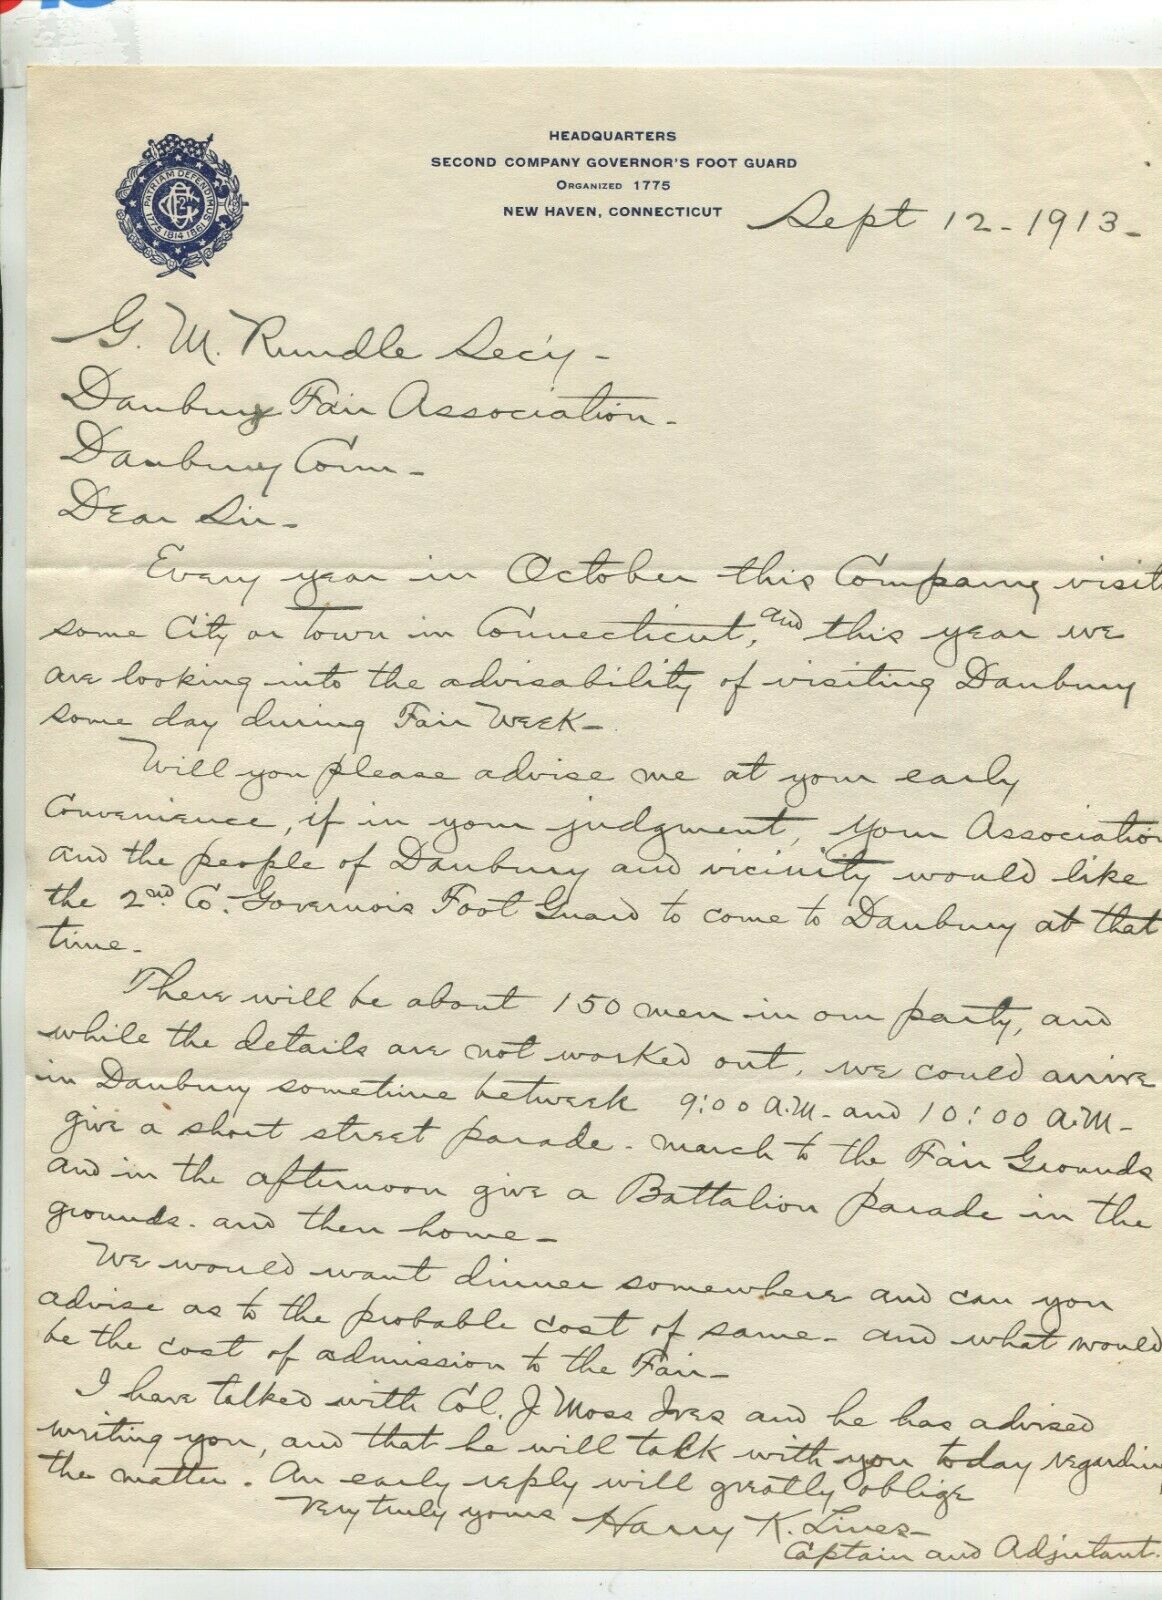 HEADQUARTERS
SECOND COMPANY GOVERNOR'S FOOT GUARD
ORGANIZED 1775
NEW HAVEN, CONNECTICUT
PATRIAM DEFENDIMUS
1775 1814 1861
2
Sept 12 - 1913 -
G. M. Rundle Sec'y -
Danbury Fair Association -
Danbury Conn -
Dear Sir -
Every year in October this Company visit
some City or Town in Connecticut, and this year we
are looking into the advisability of visiting Danbury
some day during Fair Week -
Will you please advise me at your early
convenience, if in your judgment, your Association
and the people of Danbury and vicinity would like
the 2nd Co. Governors Foot Guard to come to Danbury at that
time -
There will be about 150 men in our party, and
while the details are not worked out, we could arrive
in Danbury sometime betweek 9:00 A.M. - and 10:00 A.M -
give a short street parade - march to the Fair Grounds
and in the afternoon give a Battalion parade in the
grounds - and then home -
We would want dinner somewhere and can you
advise as to the probable cost of same - and what would
be the cost of admission to the Fair -
I have talked with Col. J Moss Ives and he has advised
writing you, and that he will talk with you today regardin
the matter. An early reply will greatly oblige
Very truly yours Harry K. Lines -
Captain and Adjutant.